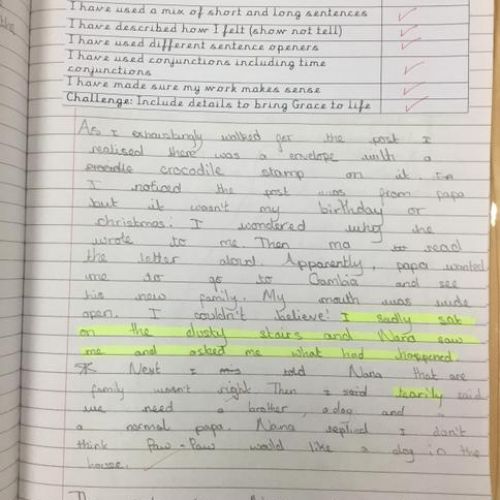 I have used a mix of short and long sentences
I have described how I felt (show not tell)
I have used different sentence openers
I have used conjunctions including time
conjunctions
I have made sure my work makes sense
Challenge: Include details to bring Grace to life
As I exhaustingly walked get the post I
realised there was a envelope with a
crocodile stamp on it.
I noticed the post was from papa
but it wasn't my birthday or
christmas. I wondered why he
wrote to me. Then ma read
the letter aloud. Apparently, papa wanted
me to go to Gambia and see
his new family. My mouth was wide
open. I couldn't believe! I sadly sat
on the dusty stairs and Nana saw
me and asked me what had happened.
Next I told Nana that are
family wasn't right. Then I said tearily said
we need a brother, a dog and
a normal papa. Nana replied I don't
think Paw-Paw would like a dog in the
house.